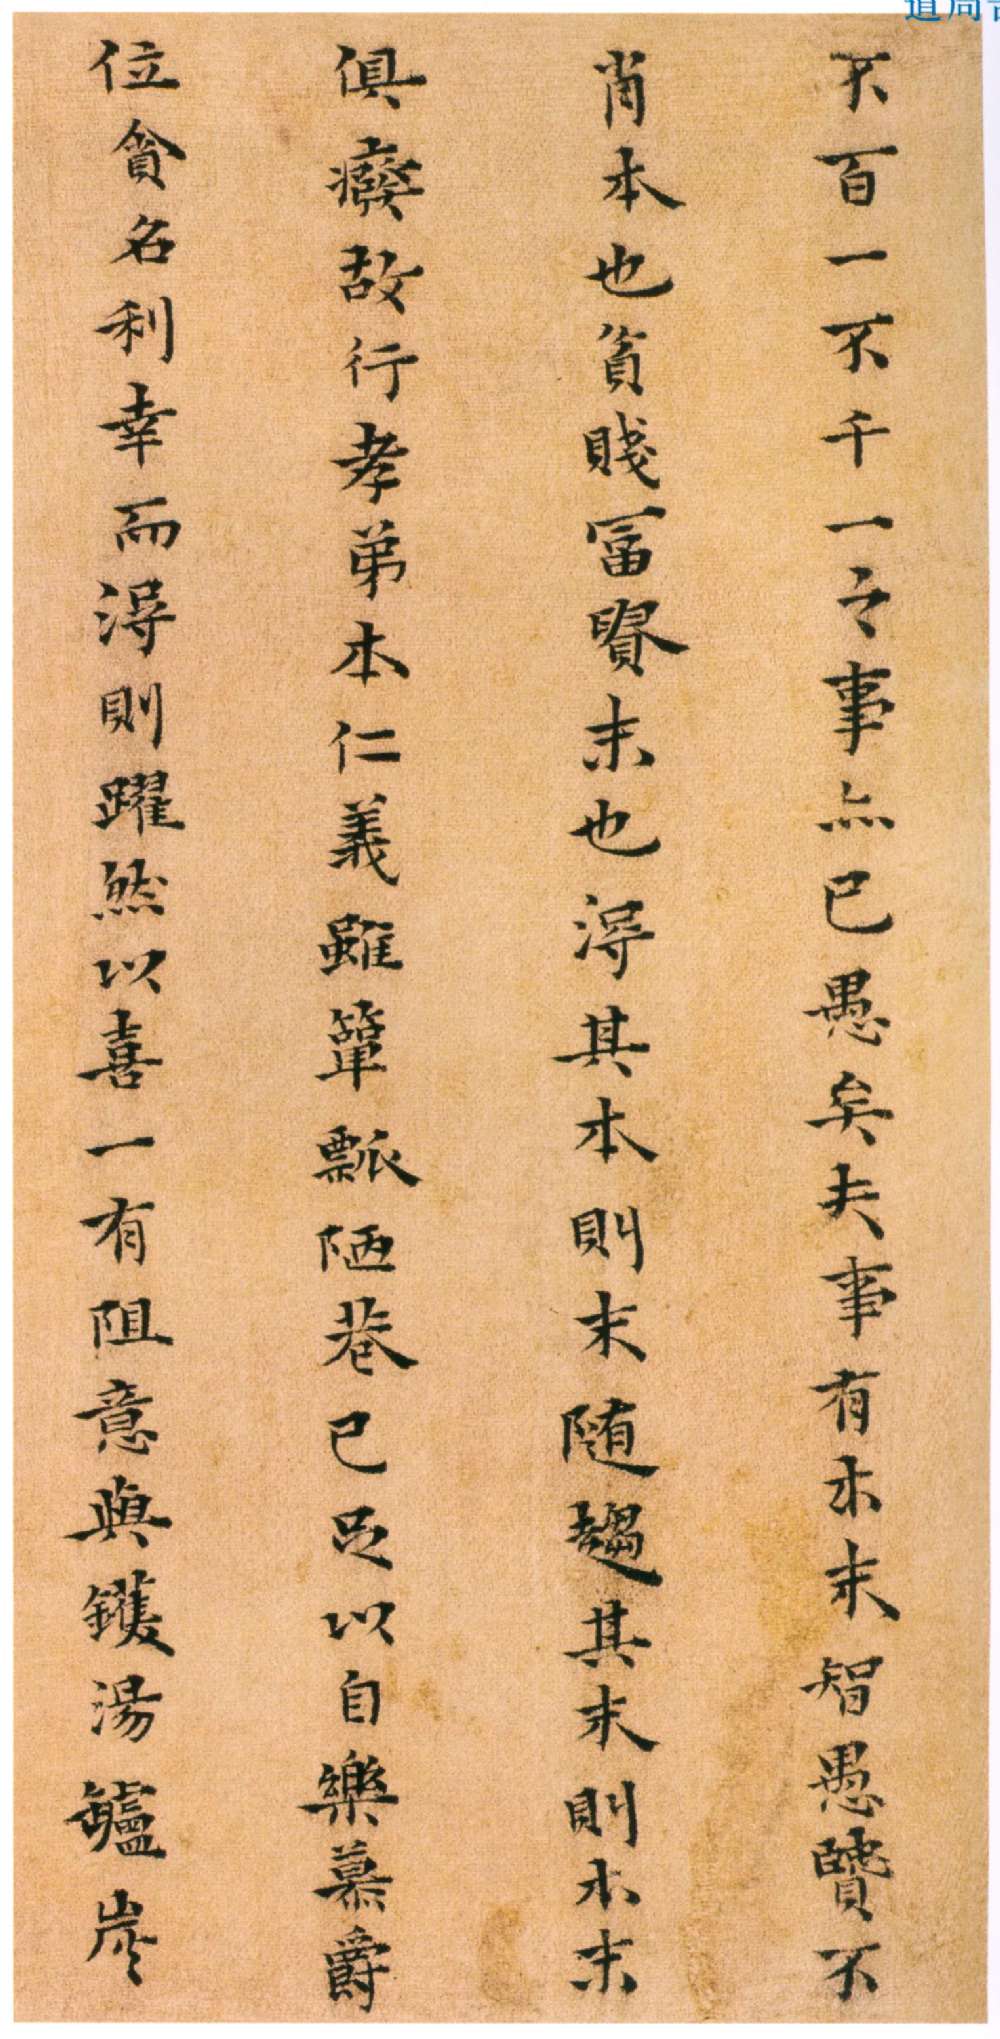 不百一不千一之事亦已愚矣夫事有本末智愚賢不
肖本也貧賤富貴末也得其本則末隨趨其末則本末
俱廢故行孝弟本仁義雖簞瓢陋巷已足以自樂慕爵
位貪名利幸而得則躍然以喜一有阻意與鑊湯鑪炭